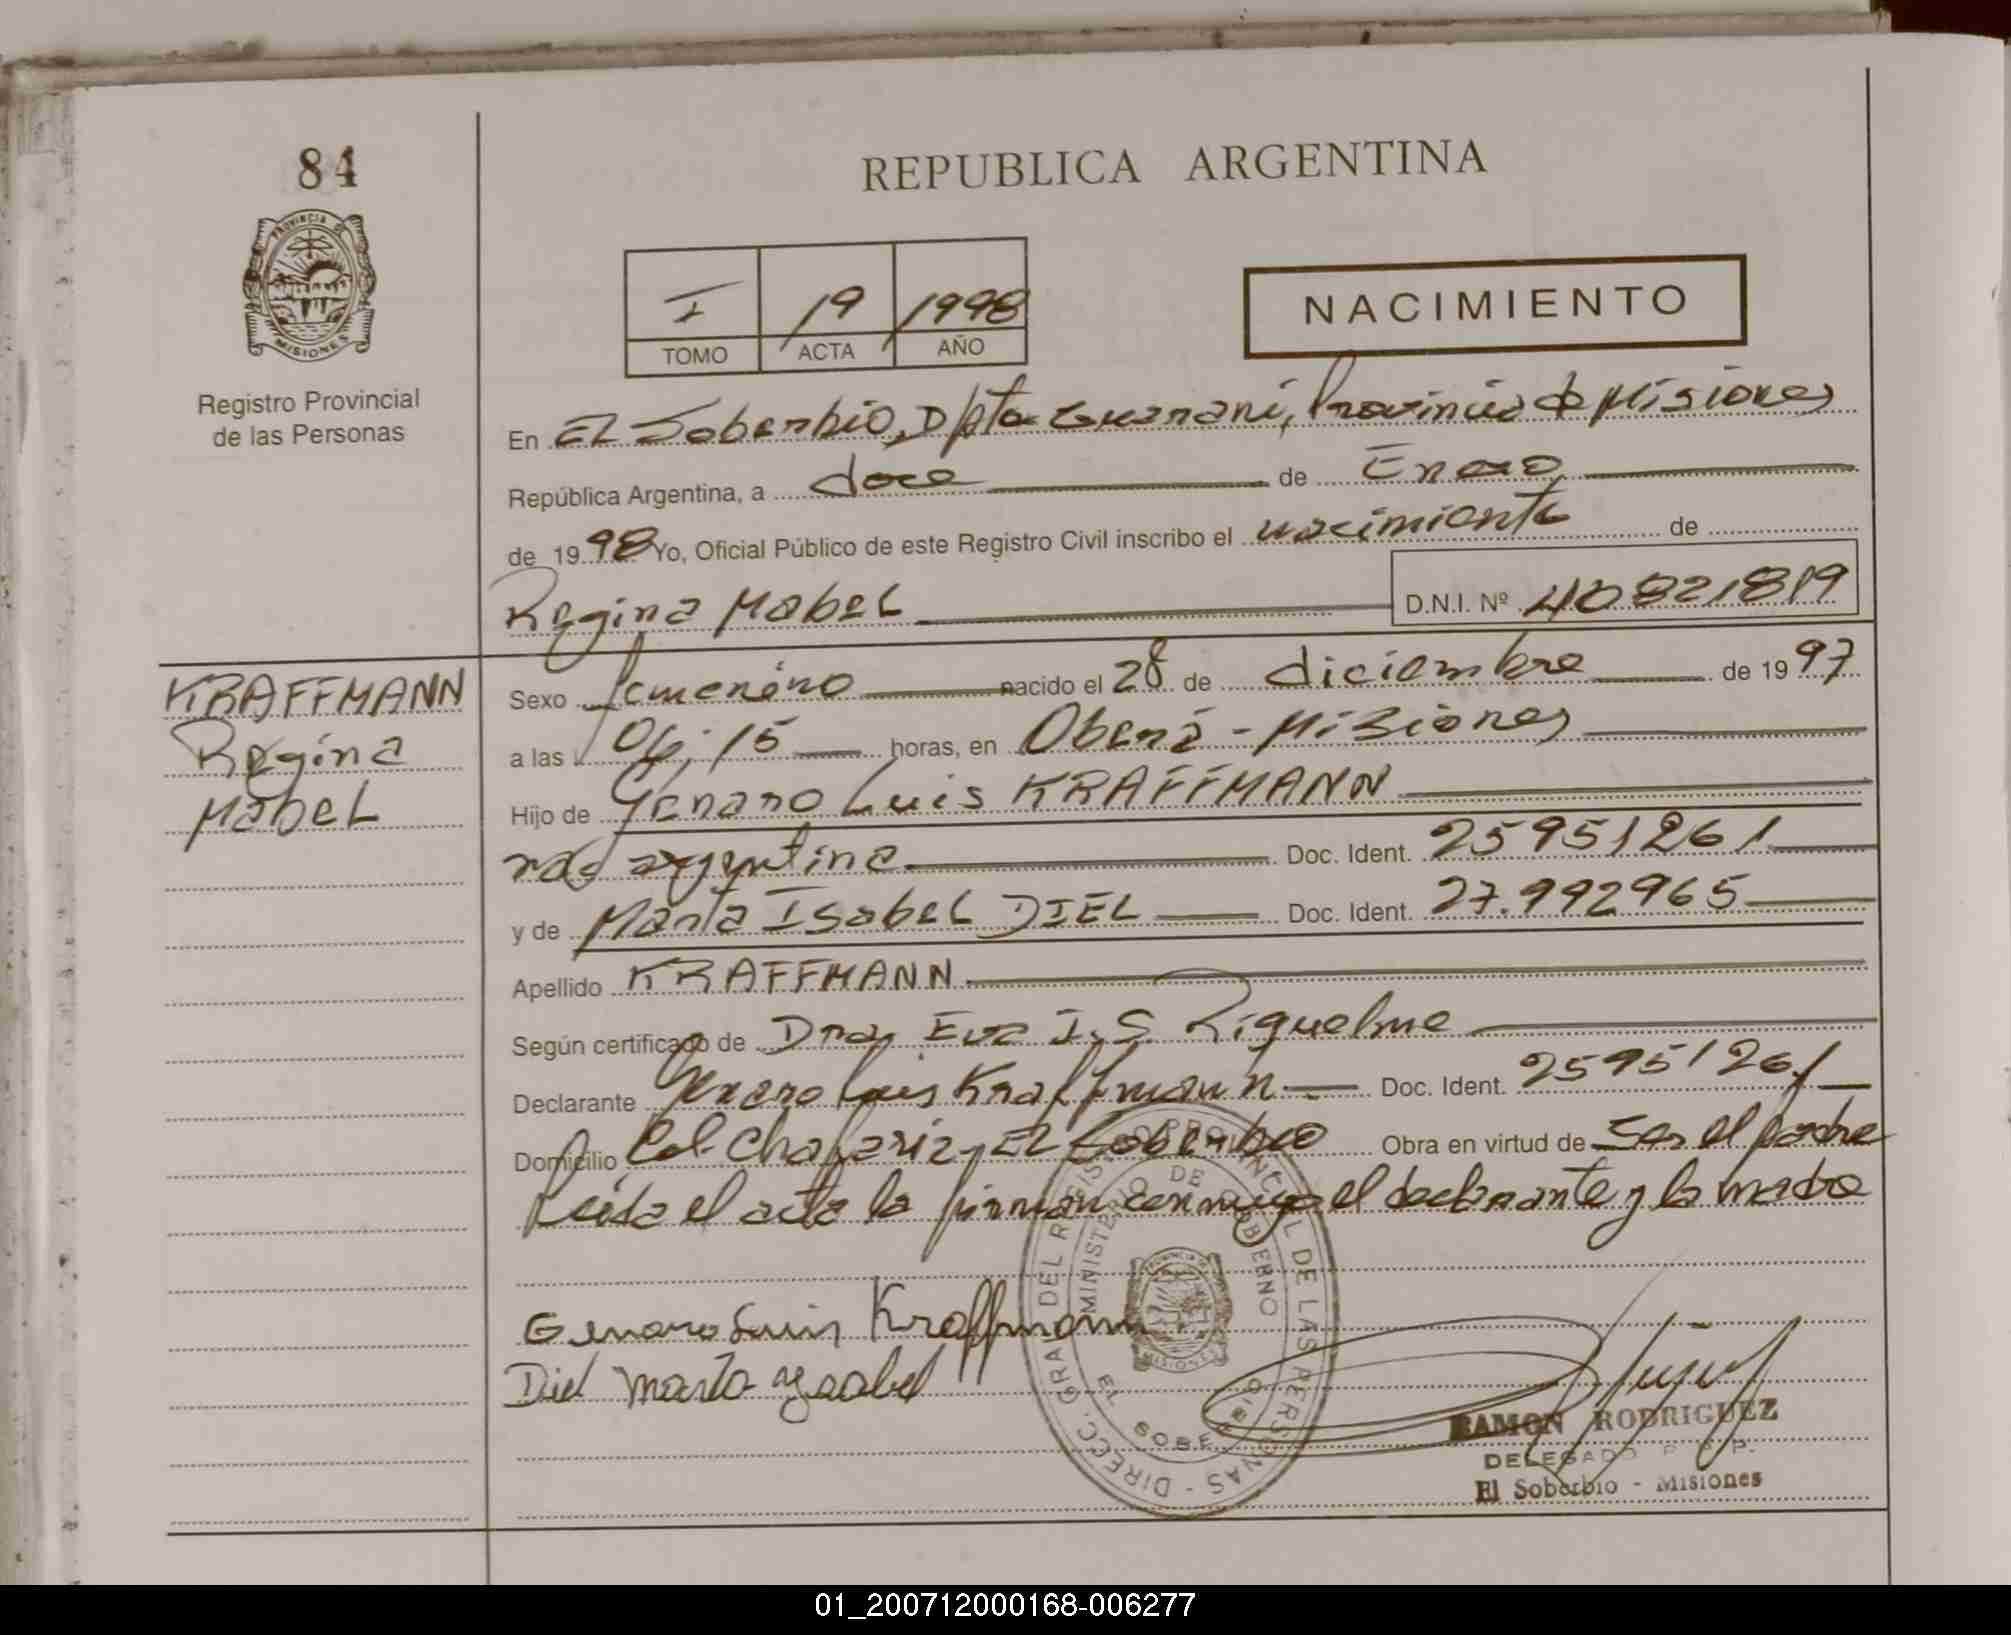 84
REPUBLICA ARGENTINA
PROVINCIA DE
MISIONES
Registro Provincial
de las Personas
I 19 1998
TOMO ACTA AÑO
NACIMIENTO
En El Soberbio, Dpto Guarani, Provincia de Misiones
República Argentina, a doce de Enero
de 1998 Yo, Oficial Público de este Registro Civil inscribo el nacimiento de
Regina Mabel D.N.I. Nº 40821819
KRAFFMANN
Regina
Mabel
Sexo femenino nacido el 28 de diciembre de 1997
a las 06,15 horas, en Oberá - Misiones
Hijo de Genaro Luis KRAFFMANN
nac argentina Doc. Ident. 25951261
y de Marta Isabel DIEL Doc. Ident. 27.992965
Apellido KRAFFMANN
Según certificado de Dra. Eva I. S. Riquelme
Declarante Genaro Luis Kraffmann Doc. Ident. 25951261
Domicilio Col. Chafariz, El Soberbio Obra en virtud de Ser el padre
Leída el acta la firman conmigo el declarante y la madre
Genaro Luis Kraffmann
Diel Marta Ysabel
DIRECC. GRAL DEL REGISTRO PROVINCIAL DE LAS PERSONAS -
MINISTERIO DE GOBIERNO
EL SOBERBIO
MISIONES
RAMON RODRIGUEZ
DELEGADO R. P. P.
El Soberbio - Misiones
01_200712000168-006277